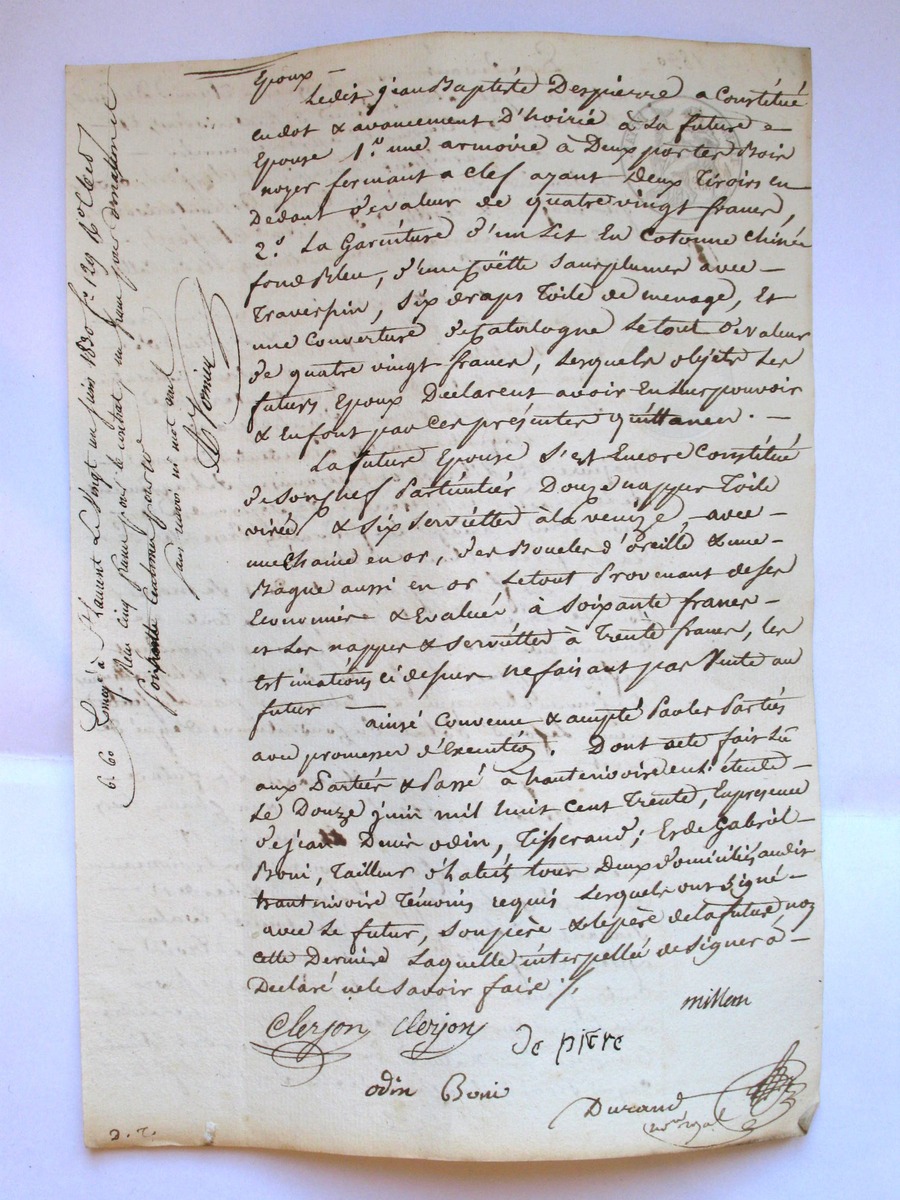 Epoux —
Ledit jean Baptiste Despierre a Constitué
en dot & avancement D'hoirie à la future =
Epouse 1.º une armoire à Deux portes Bois
noyer fermant a clef ayant Deux Tiroirs en
Dedant d'evaleur de quatre vingt francs,
2.º La Garniture d'un Lit En Cotonne Chinée
fond Bleu, d'une Coëtte sans plumes avec —
Traverpin, six draps Toile de menage, Et
une Couverture de Catalogne Le tout d'evaleur
de quatre vingt francs, Lesquels objets Les
futurs Epoux Declarent avoir En Leur pouvoir
& En font par Ces présentes quittance . —
La future Epouse s'est Encore Constitué
de son chef Particulier Douze nappes Toile
virée & six serviettes à la venize, avec —
une Chaine en or, des Boucles d'oreille & une
Bague aussi en or Le tout Provenant de ses
Economies & Evalué à soixante francs —
et Les nappes & serviettes à Trente francs, les
Estimations ci dessus ne faisant pas Vente au
futur — ainsi Convenu & accepté Par les Parties
avec promesses d'Execution. Dont acte fait Lu
aux Parties & Passé à hauterivoire en l'étude —
Le Douze juin mil huit Cent Trente, En presence
de jean Denis odin, Tisserand; Et de Gabriel
Boni, Tailleur d'habits tous Deux domiciliés audit
hauterivoire Témoins requis Lesquels ont signé —
avec Le futur, son père & le père de la future, non
cette Derniere Laquelle interpellée de signer à —
Declaré ne le savoir faire ./.
millon
Clerjon Clerjon
De pierre
odin Boni
Durand
not.re royal
2. r.
Enregé à St Laurent Le Vingt un juin 1830 f.º 129 R.º C.es
Reçu cinq francs pour le contrat, un franc pour donation et
soixante Centimes pour
sans renvoi ni mot nul
6. 60